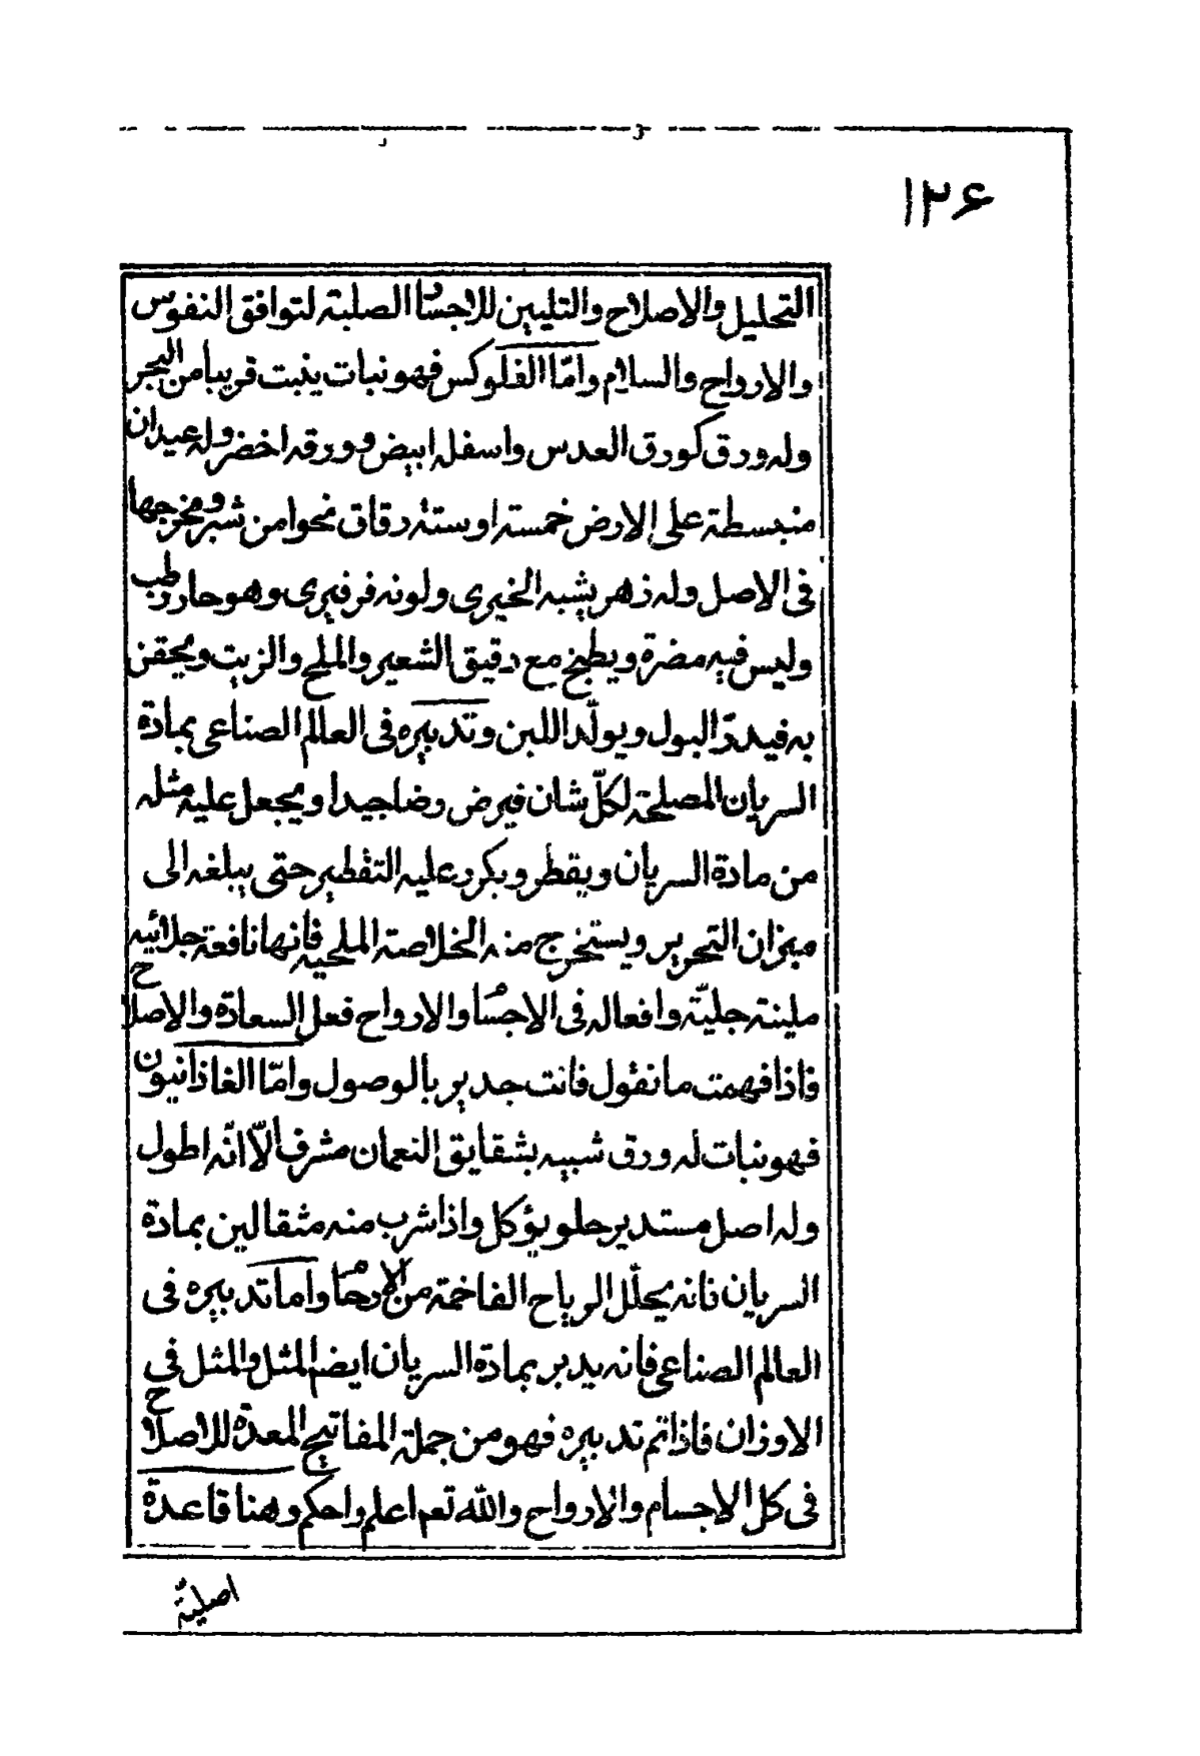 ١٢۶
التحليل والاصلاح والتليين للاجساد الصلبة لتوافق النفوس
والارواح والسلام وامّا الفلوكس فهو نبات ينبت قريباً من البحر
وله ورق كورق العدس واسفله ابيض وورقه اخضر وله عيدان
منبسطة على الارض خمسة او ستة دقاق نحوا من شبر ومخرجها
فى الاصل وله زهر يشبه الخيرى ولونه فرفيرى وهو حار رطب
وليس فيه مضرة ويطبخ مع دقيق الشعير والملح والزيت ويحقن
به فيدرّ البول ويولّد اللبن وتدبيره فى العالم الصناعى بمادة
السريان المصلحة لكلّ شان فيرض رضا جيدا ويجعل عليه مثله
من مادة السريان ويقطر ويكرر عليه التقطير حتى يبلغه الى
ميزان التحرير ويستخرج منه الخلاصة الملحيه فانها نافعة جلائيه
ملينة جليّة وافعاله فى الاجسام والارواح فعل السعادة والاصلاح
فاذا فهمت ما نقول فانت جدير بالوصول وامّا الغاذانيون
فهو نبات له ورق شبيه بشقايق النعمان مشرف الّا انّه اطول
وله اصل مستدير حلو يؤكل واذا شرب منه مثقالين بمادة
السريان فانه يحلّل الرياح الفاخمة من الارحام واما تدبيره فى
العالم الصناعى فانه يدبر بمادة السريان ايضا المثل والمثل فى
الاوزان فاذا تم تدبيره فهو من جملة المفاتيح المعدة للاصلاح
فى كل الاجسام والارواح والله تعم اعلم واحكم وهنا قاعدة
اصلية